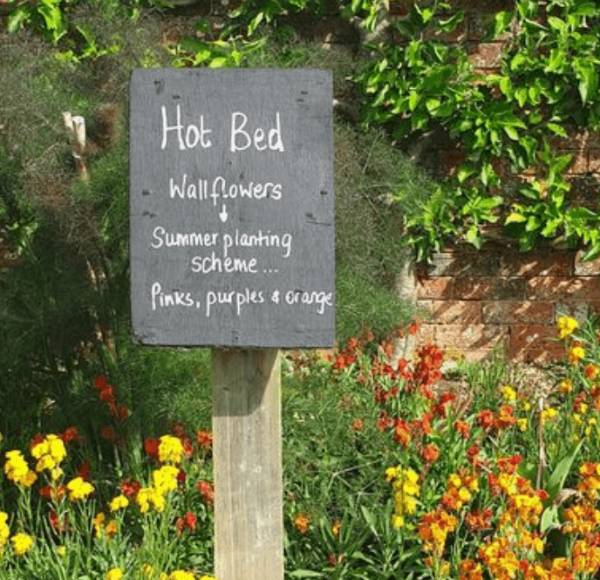 Hot Bed
Wallflowers
↓
Summer planting
scheme...
Pinks, purples & orange